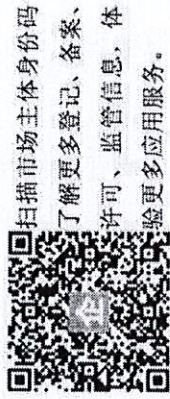 扫描市场主体身份码
了解更多登记、备案、
许可、监管信息，体
验更多应用服务。
企